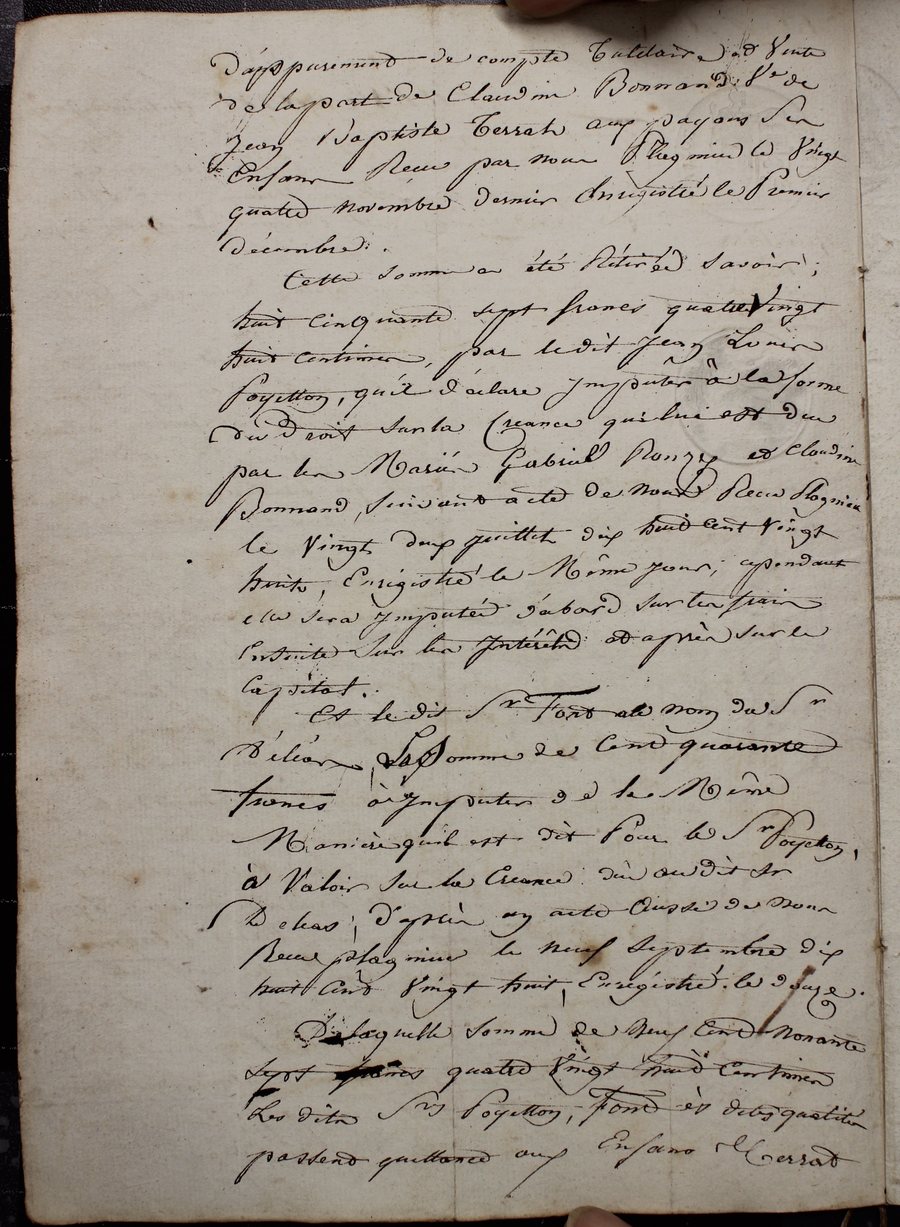 d'appurement de compte Tutélaire et Vente
de la part de Claudine Bonnand Ve de
Jean Baptiste Terrat aux payans Ses
Enfans Recu par nous Plagnieu le Vingt
quatre novembre dernier Enregistré le Premier
décembre.
Cette somme a été Rétirée savoir;
huit cinquante sept francs quatre Vingt
huit centimes, par ledit Jean Louis
Poyetton, qu'il déclare jmputer à la forme
du Droit sur la Creance qui lui est due
par les Mariés Gabriel Ronzy et Claudine
Bonnand, Suivant acte de nous Recu Plagnieu
le Vingt deux juillet dix huit cent Vingt
huit, Enrégistré le Même jour; cependant
elle sera jmputée d'abord sur les frais
Ensuite sur les jntérêts et après sur le
Capital.
Et le dit Sr Font au nom du Sr
Délias, La Somme de Cent quarante
francs à jmputer de la Même
Manière qu'il est dit Pour le Sr Poyetton,
à Valoir sur la Creance due au dit Sr
Delias, d'après un acte Aussi de nous
Recu plagnieu le neuf Septembre dix
huit Cent Vingt huit, Enrégistré le douze.
De laquelle somme de Neuf Cent Nonante
sept francs quatre Vingt huit Centimes
Les dits Srs Poyetton, Font ès dites qualités
passent quittance aux Enfans Terrat